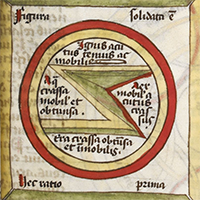 Figura
solidata ē
Ignis acu
tus tenuis ac
mobilis
Aq
crassa
mobil et
obtunsa
Aer
mobil a
cutus
cras
sus
Terra crassa obtūsa
et īmobilis
Hec ratio
prima